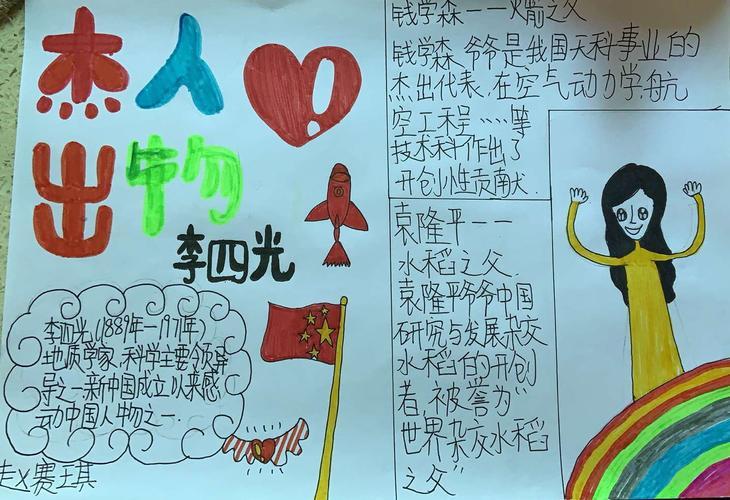 杰人
出物
李四光
李四光(1889年—1971年)
地质学家,科学主要领导
导之一,新中国成立以来感
动中国人物之一.
赛琪
钱学森——火箭之父
钱学森爷爷是我国天科事业的
杰出代表.在空气动力学.航
空工程……等
技术科作出了
开创小性贡献.
袁隆平——
水稻之父.
袁隆平爷爷中国
研究与发展杂交
水稻的开创
者,被誉为“
世界杂交水稻
之父”